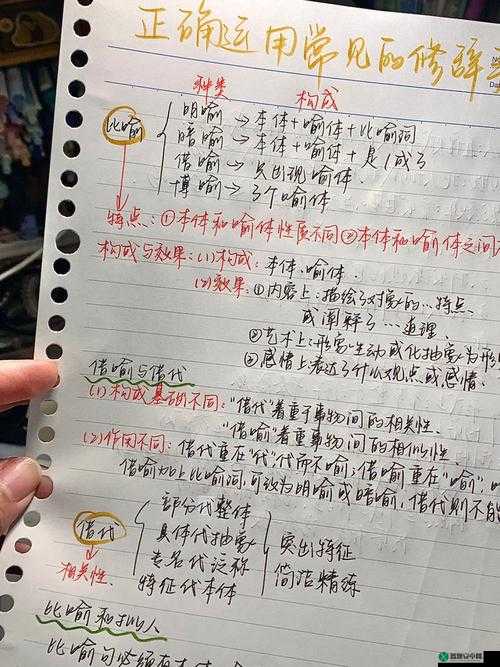 正确运用常见的修辞
种类 构成
比喻
明喻→本体+喻体+比喻词
暗喻→本体+喻体+是/成了
借喻→只出现喻体.
博喻→3个喻体
特点:①本体和喻体性质不同②本体和喻体之间
构成与效果:(1)构成:本体.喻体.
(2)效果:①内容上:描绘了对象的…特点
或阐释了…道理.
②艺术上:形象生动或化抽象为形
③感情上:表达了什么观点或感情.
借喻与借代
(1)构成基础不同:"借代"着重于事物间的相关性.
"借喻"着重事物间的相似性.
(2)作用不同:借代重在"代",代而不喻;借喻重在"喻",
借喻加上比喻词,可改为明喻或暗喻,借代则不能
借代
相关性.
部分代整体
具体代抽象
专名代泛称
特征代本体
突出特征
简洁精练
比喻和拟人
比喻句必须有本